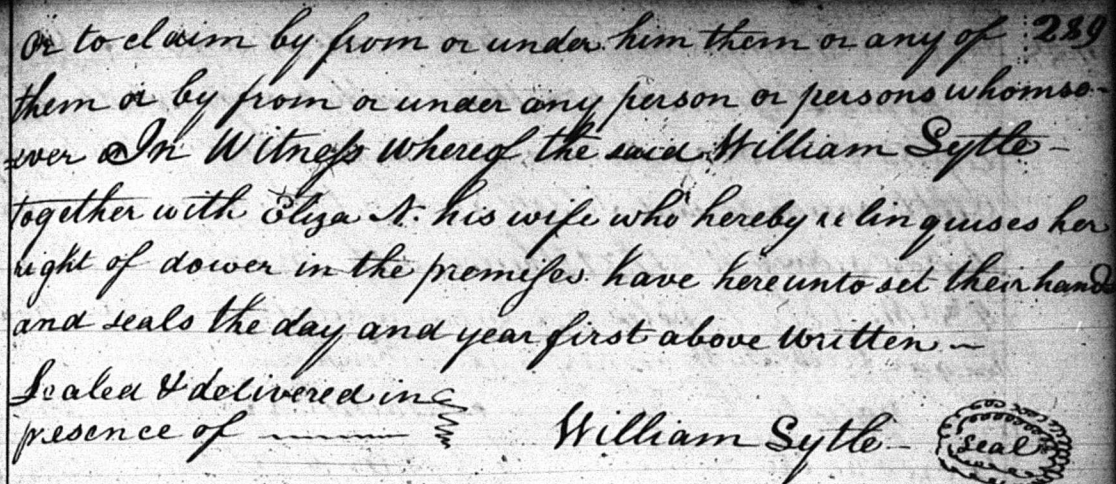 or to claim by from or under him them or any of 289
them or by from or under any person or persons whomso-
ever In Witness whereof the said William Lytle -
together with Eliza N. his wife who hereby relinquises her
right of dower in the premises have hereunto set their hands
and seals the day and year first above written -
Sealed & delivered in
presence of
William Lytle - Seal